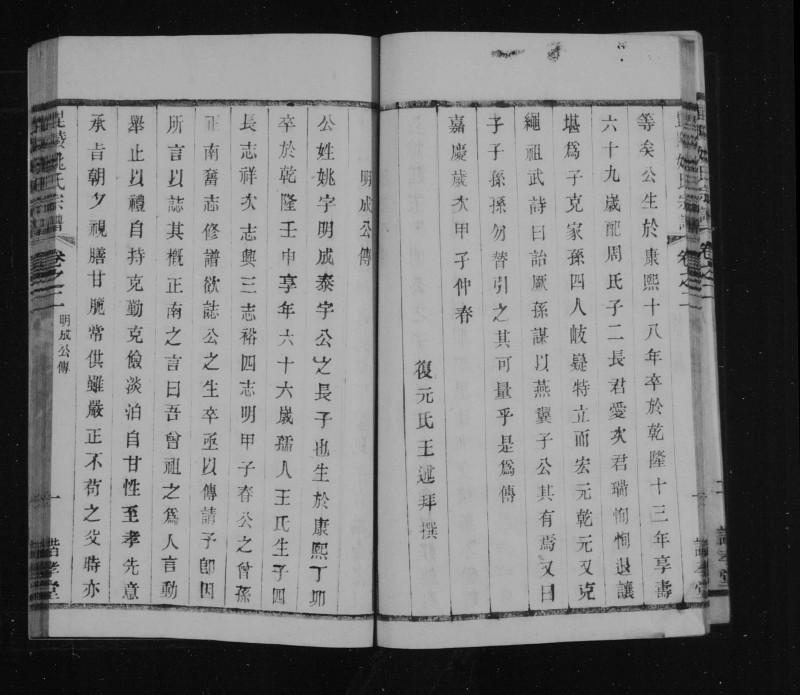 等矣公生於康熙十八年卒於乾隆十三年享壽
六十九歲配周氏子二長君愛次君瑞恂恂退讓
堪爲子克家孫四人岐嶷特立而宏元乾元又克
繩祖武詩曰詒厥孫謀以燕翼子公其有焉又曰
子子孫孫勿替引之其可量乎是爲傳
嘉慶歲次甲子仲春
復元氏王述拜撰
明成公傳
公姓姚字明成泰宇公之長子也生於康熙丁卯
卒於乾隆壬申享年六十六歲孺人王氏生子四
長志祥次志興三志裕四志明甲子春公之曾孫
正南奮志修譜欲誌公之生卒亟以傳請予卽因
所言以誌其概正南之言曰吾曾祖之爲人言動
舉止以禮自持克勤克儉淡泊自甘性至孝先意
承吉朝夕視膳甘脆常供雖嚴正不苟之父時亦
毘陵姚氏宗譜
卷之二
明成公傳
一
諧孝堂